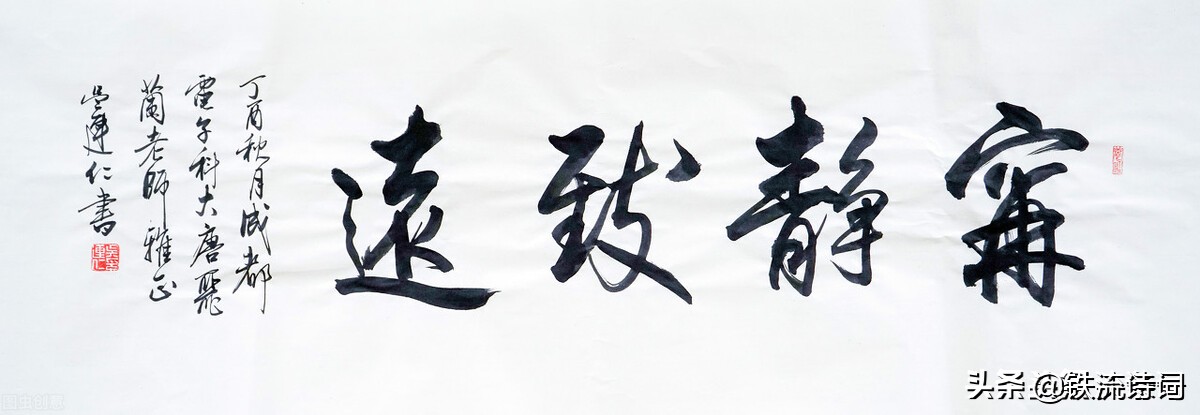 甯静致遠
丁酉秋月成都
電子科大唐聚
蘭老師雅正
吴運仁書
头条 @铁流诗词
图虫创意